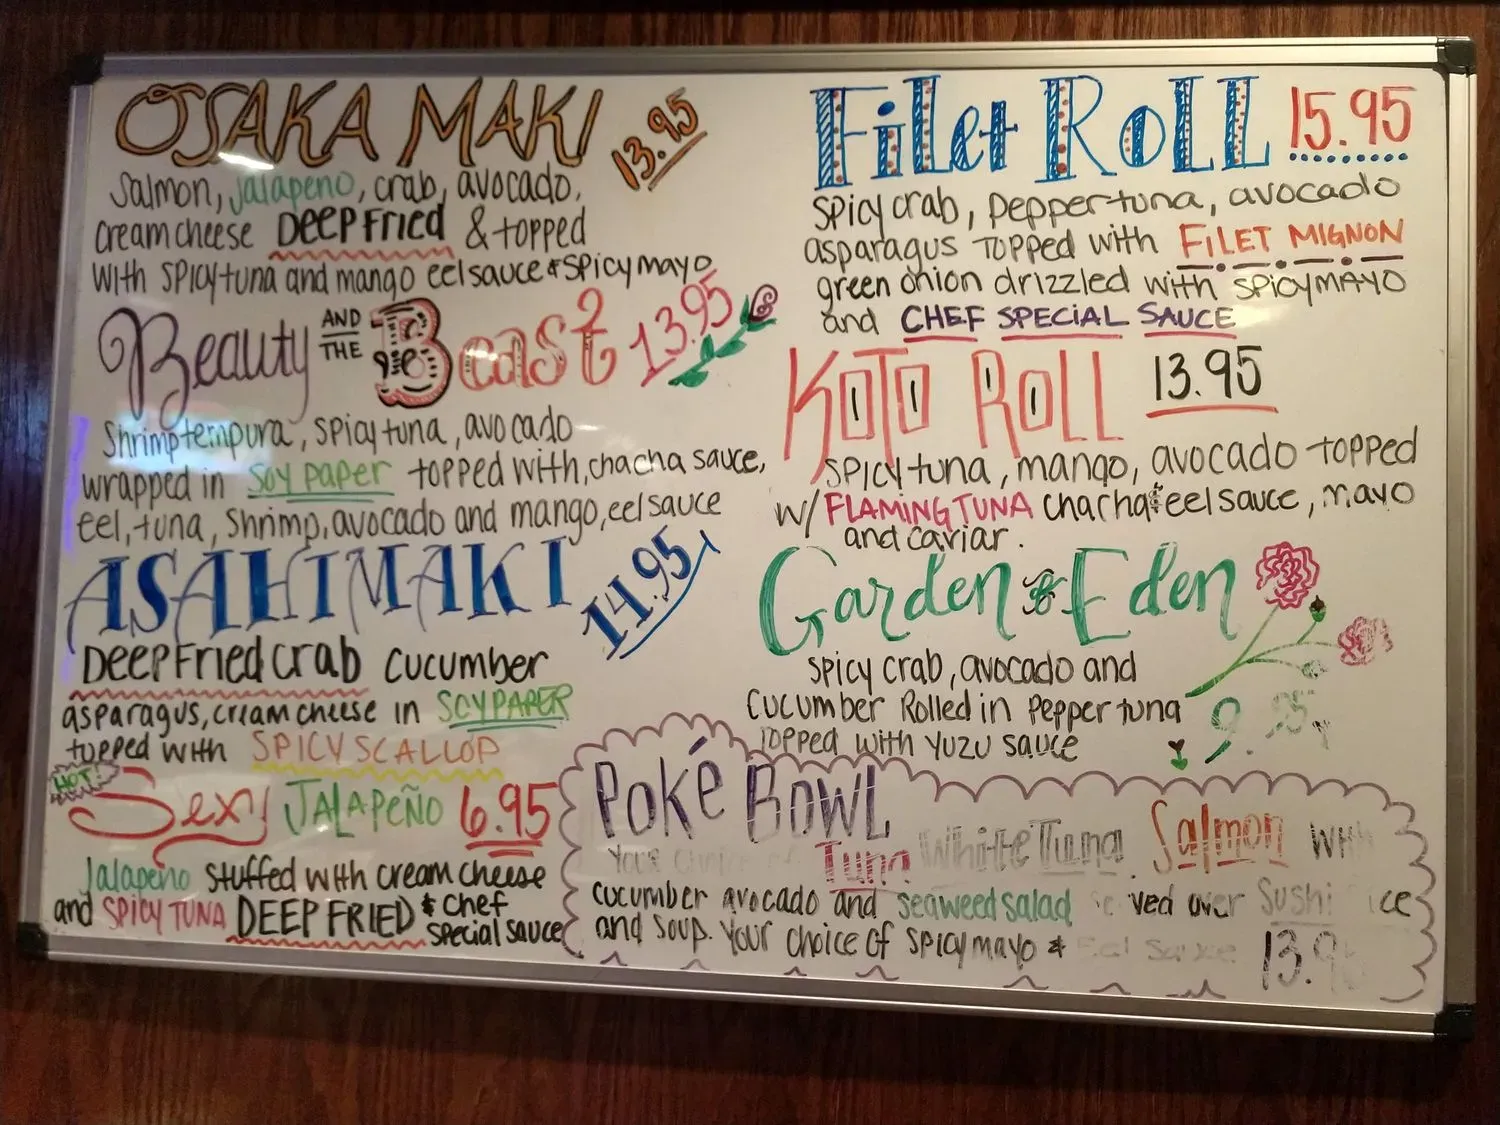 OSAKA MAKI 13.95
Salmon, jalapeno, crab, avocado,
cream cheese DEEP FRIED & topped
with SPICY tuna and mango eel sauce & spicy mayo
Beauty AND THE Beast 13.95
Shrimp tempura, spicy tuna, avocado
wrapped in soy paper topped with, chacha sauce,
eel, tuna, shrimp, avocado and mango, eel sauce
ASAHI MAKI 14.95
DEEP FRIED CRAB CUCUMBER
asparagus, cream cheese in SOY PAPER
topped with SPICY SCALLOP
HOT!
Sexy JALAPEÑO 6.95
Jalapeño stuffed with cream cheese
and SPICY TUNA DEEP FRIED & chef
special sauce
Filet Roll 15.95
spicy crab, pepper tuna, avocado
asparagus topped with FILET MIGNON
green onion drizzled with SPICY MAYO
and CHEF SPECIAL SAUCE
KOTO ROLL 13.95
SPICY tuna, mango, avocado topped
w/ FLAMING TUNA chacha & eel sauce, mayo
and caviar.
Garden of Eden
spicy crab, avocado and
cucumber Rolled in pepper tuna
topped with yuzu sauce 9.95
Poké Bowl
Your choice of Tuna White Tuna Salmon with
cucumber avocado and seaweed salad served over Sushi rice
and soup. Your choice of spicy mayo & eel sauce